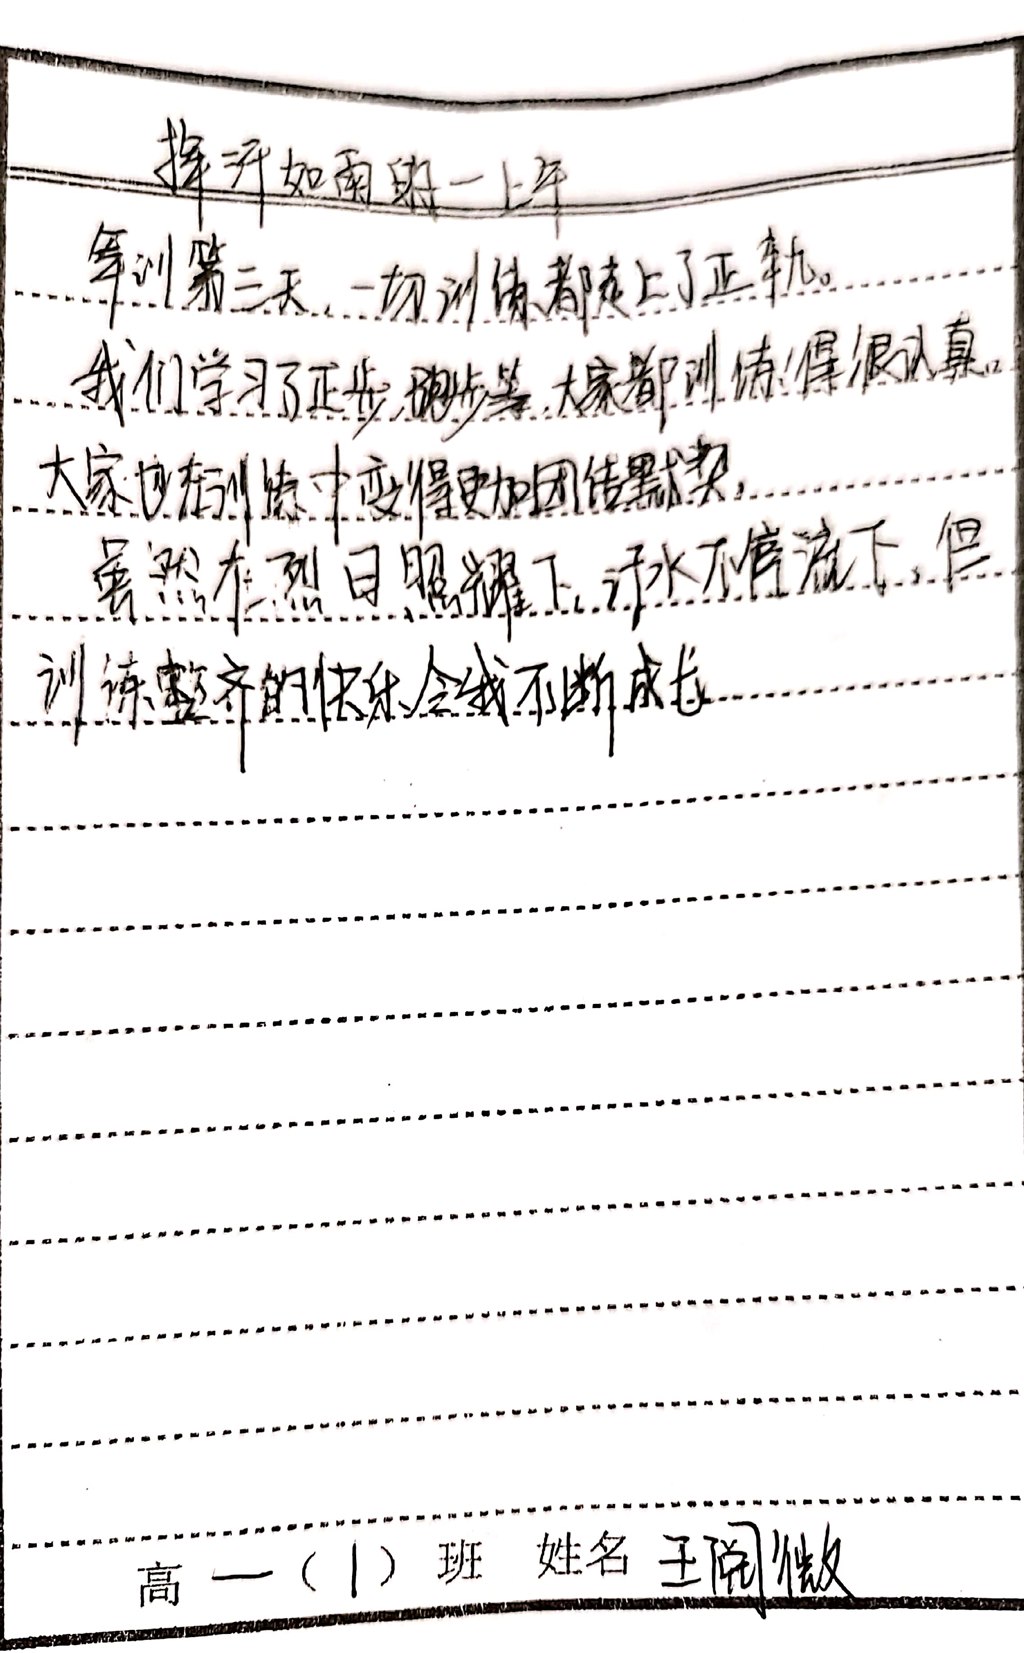 挥汗如雨的一上午
军训第二天，一切训练都走上了正轨。
我们学习了正步，跑步等，大家都训练得很认真。
大家也在训练中变得更加团结默契，
虽然在烈日照耀下，汗水不停流下，但
训练整齐的快乐令我不断成长
高一（1）班 姓名 王阅微